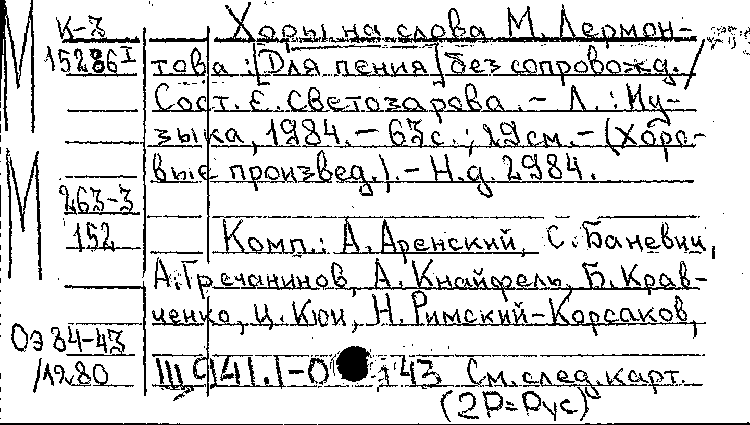 К-3 Хоры на слова М. Лермон-
15286I това: [Для пения] без сопровожд./
Сост. Е. Светозарова. - Л.: Му-
зыка, 1984. - 63с.; 29см. - (Хоро-
вые произвед.). - Н.д. 2984.
263-3
152 Комп.: А. Аренский, С. Баневич,
А. Гречанинов, А. Кнайфель, Б. Крав-
ченко, Ц. Кюи, Н. Римский-Корсаков,
ОЭ 84-43
/1280 Ш 941.1-0 43 См. след. карт.
(2Р=Рус)
М
М